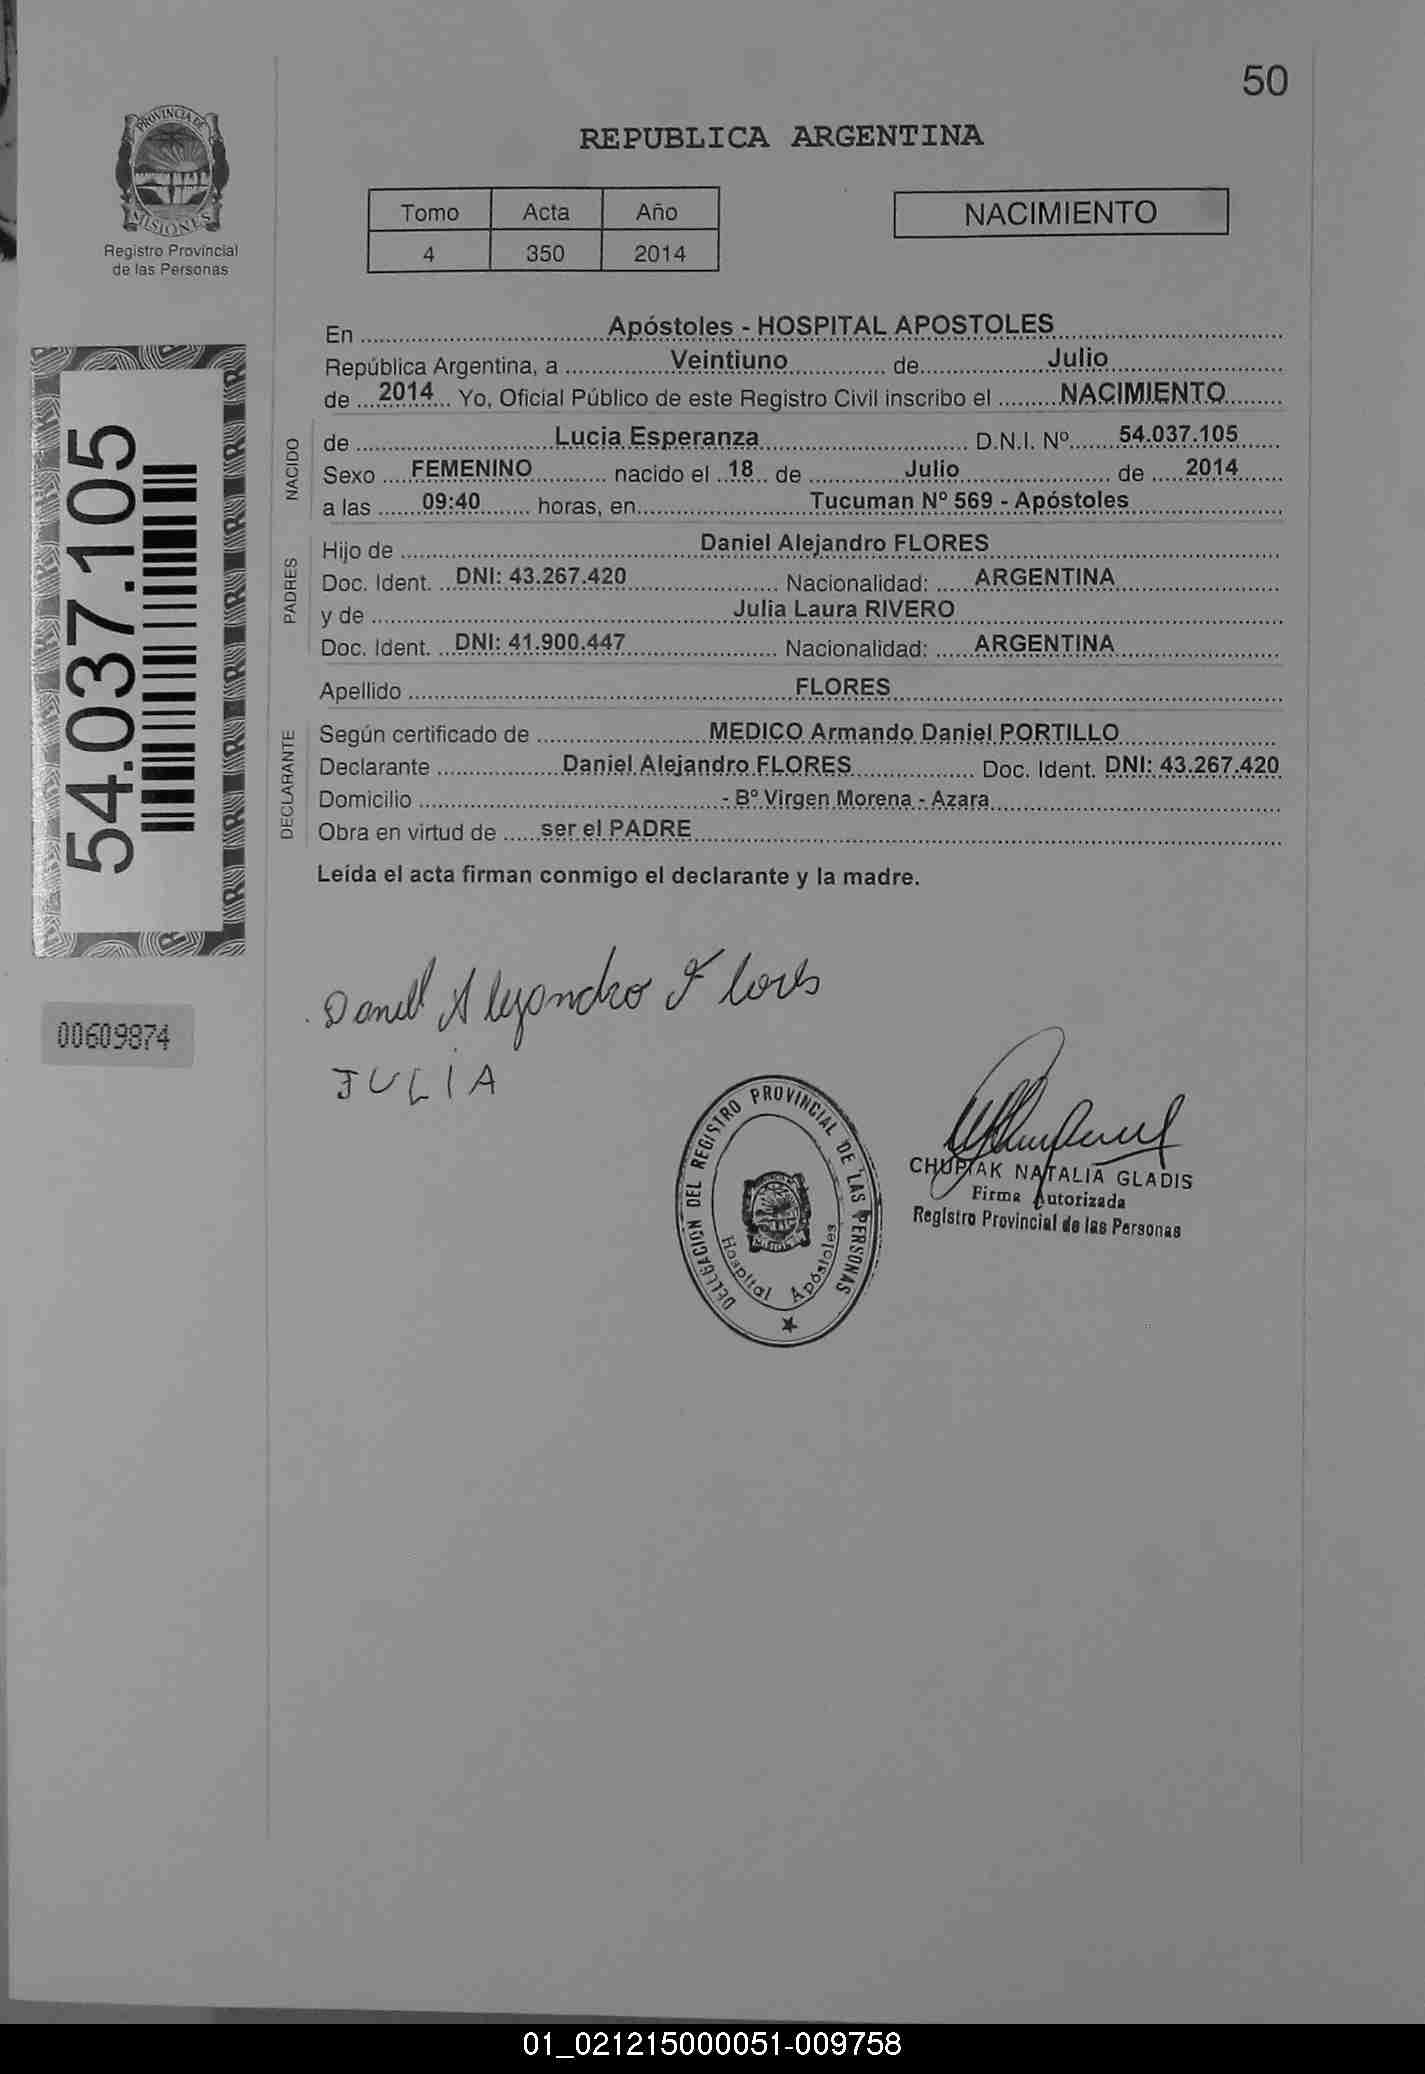 50
PROVINCIA DE
MISIONES
Registro Provincial
de las Personas
REPUBLICA ARGENTINA
Tomo Acta Año
4 350 2014
NACIMIENTO
54.037.105
00609874
En Apóstoles - HOSPITAL APOSTOLES
República Argentina, a Veintiuno de Julio
de 2014 Yo, Oficial Público de este Registro Civil inscribo el NACIMIENTO
NACIDO
de Lucia Esperanza D.N.I. Nº 54.037.105
Sexo FEMENINO nacido el 18 de Julio de 2014
a las 09:40 horas, en Tucuman Nº 569 - Apóstoles
PADRES
Hijo de Daniel Alejandro FLORES
Doc. Ident. DNI: 43.267.420 Nacionalidad: ARGENTINA
y de Julia Laura RIVERO
Doc. Ident. DNI: 41.900.447 Nacionalidad: ARGENTINA
Apellido FLORES
DECLARANTE
Según certificado de MEDICO Armando Daniel PORTILLO
Declarante Daniel Alejandro FLORES Doc. Ident. DNI: 43.267.420
Domicilio - Bº Virgen Morena - Azara
Obra en virtud de ser el PADRE
Leída el acta firman conmigo el declarante y la madre.
Daniel Alejandro Flores
JULIA
DELEGACION DEL REGISTRO PROVINCIAL DE LAS PERSONAS
Hospital Apóstoles
CHUPIAK NATALIA GLADIS
Firma Autorizada
Registro Provincial de las Personas
01_021215000051-009758